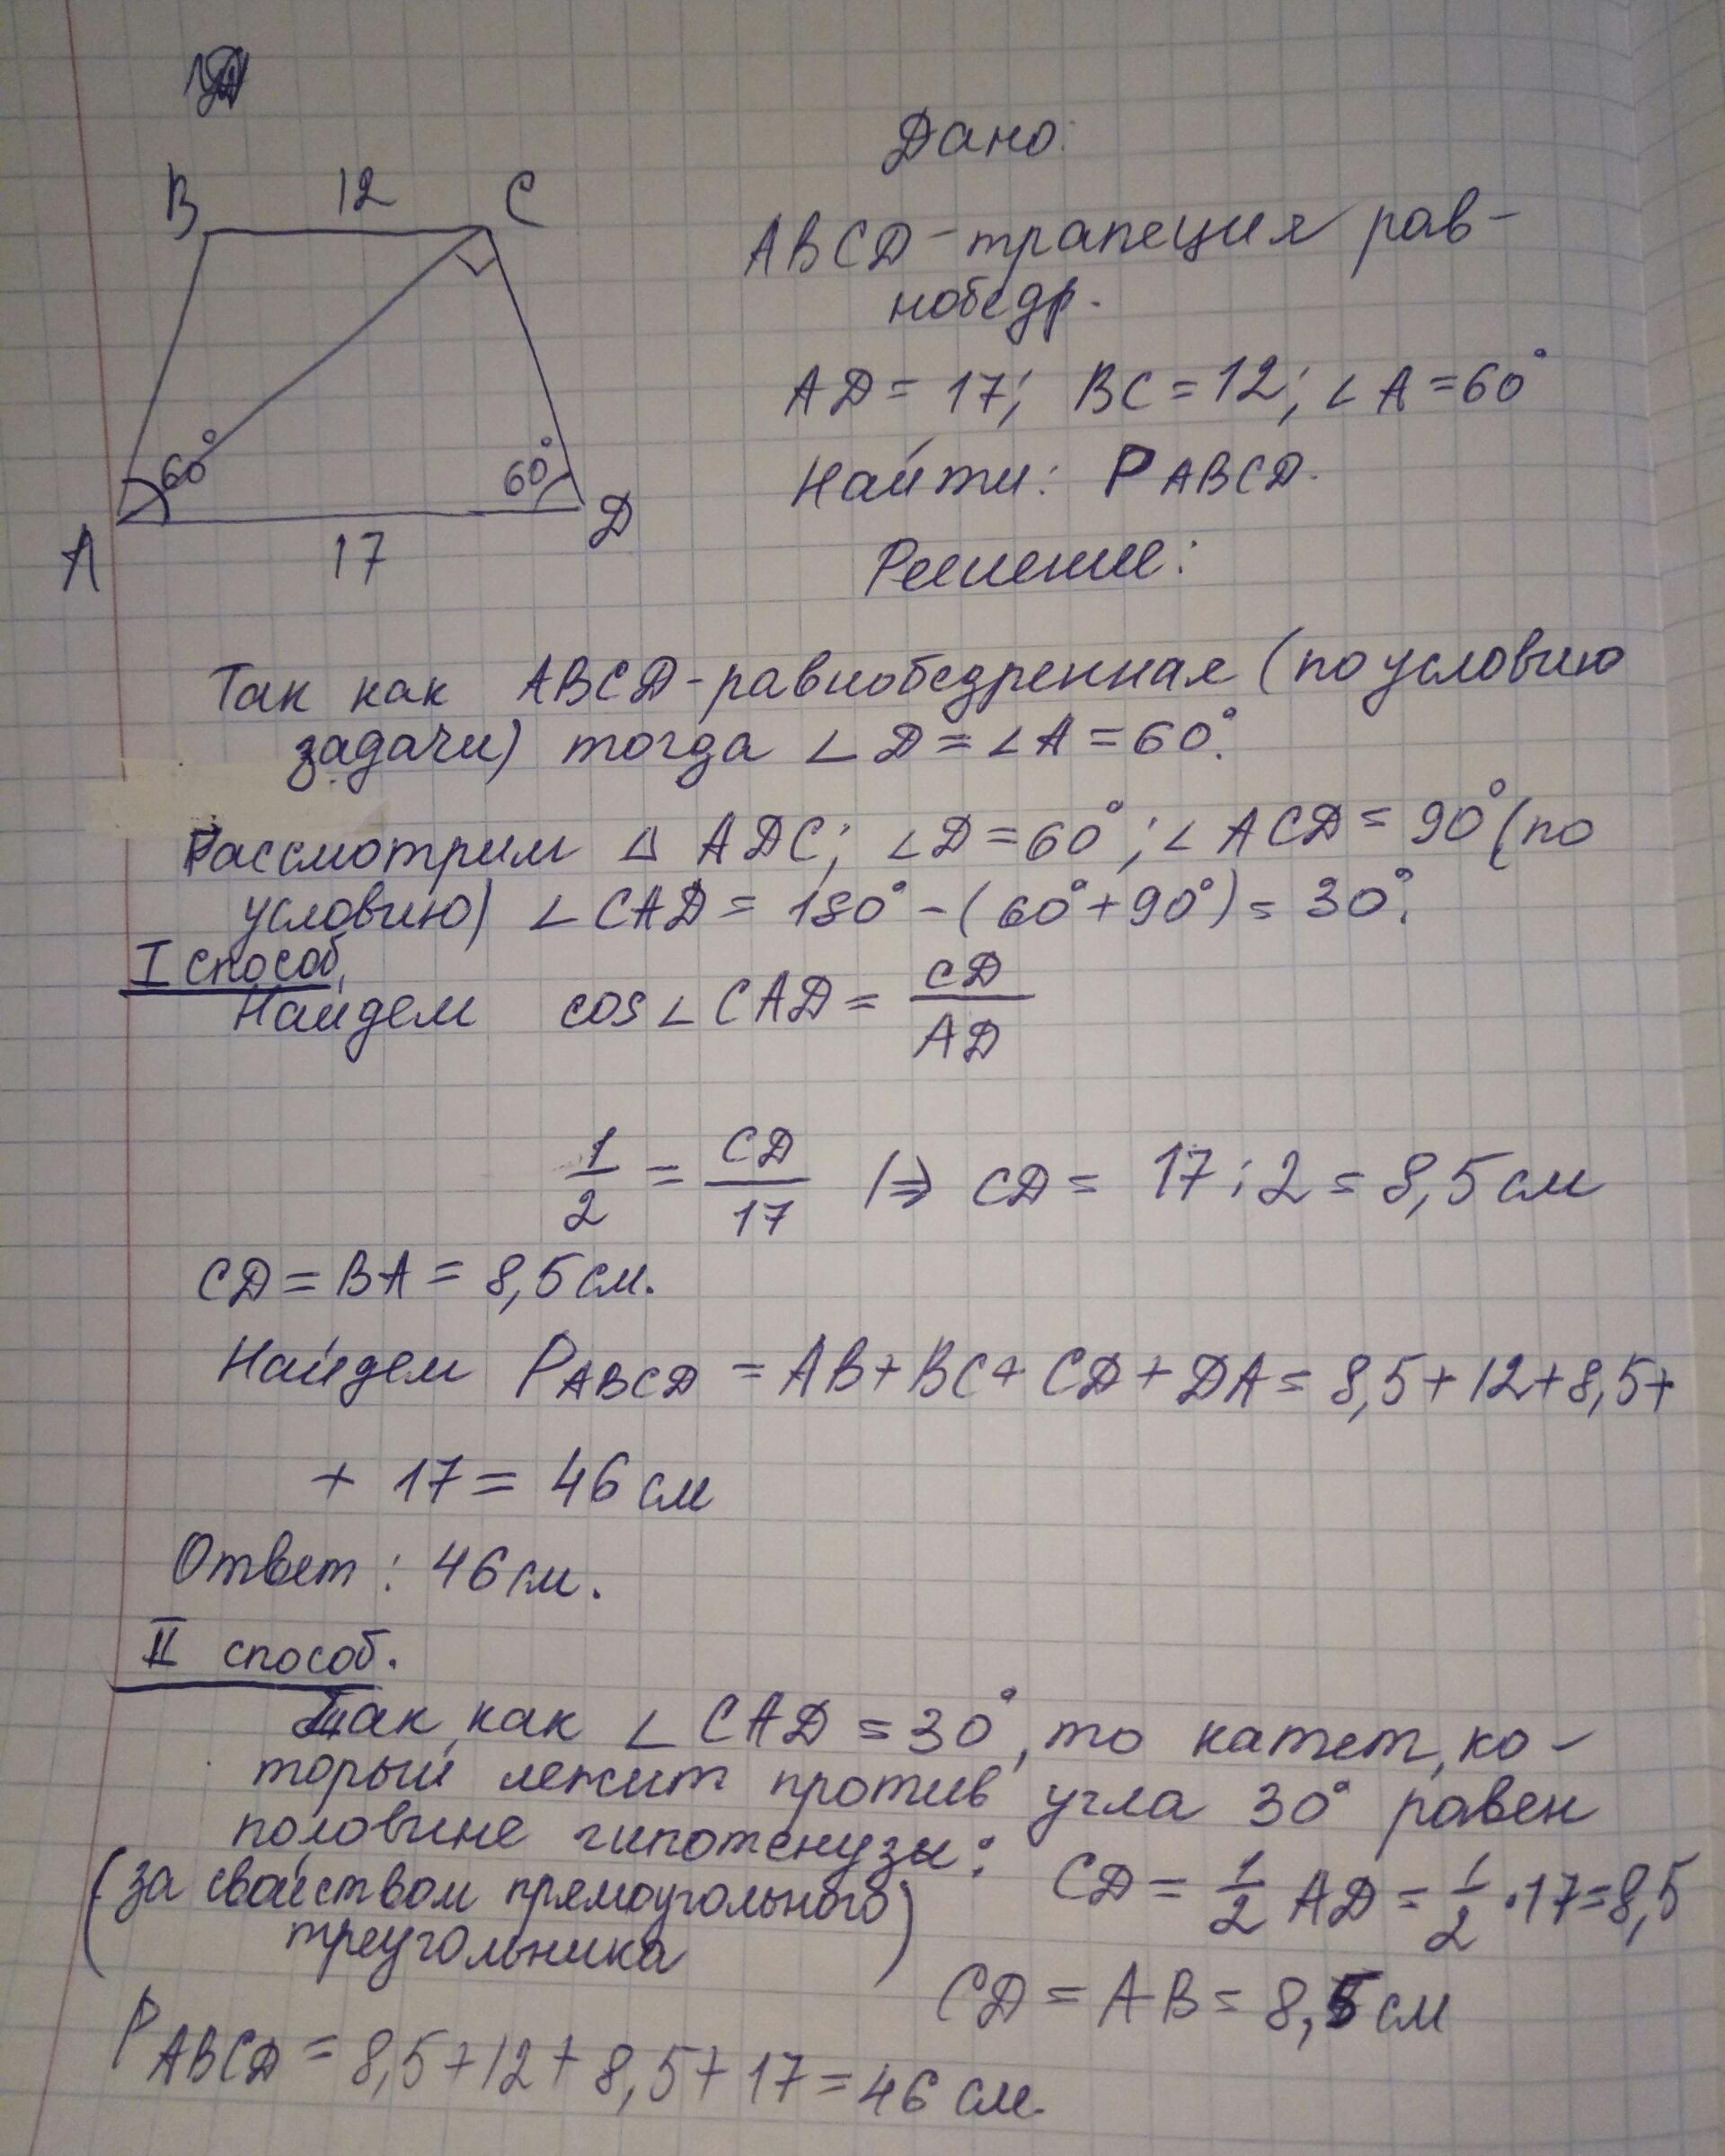 B 12 C
60° 60°
A 17 D
Дано:
ABCD - трапеция рав-
нобедр.
AD = 17; BC = 12; ∠A = 60°
Найти: P ABCD.
Решение:
Так как ABCD - равнобедренная (по условию
задачи) тогда ∠D = ∠A = 60°.
Рассмотрим △ ADC; ∠D = 60°; ∠ACD = 90° (по
условию) ∠CAD = 180° - (60° + 90°) = 30°.
I способ,
Найдем cos∠CAD = CD/AD
1/2 = CD/17 |⇒ CD = 17 : 2 = 8,5 см
CD = BA = 8,5 см.
Найдем P ABCD = AB + BC + CD + DA = 8,5 + 12 + 8,5 +
+ 17 = 46 см
Ответ: 46 см.
II способ.
Так, как ∠CAD = 30°, то катет, ко-
торый лежит против угла 30° равен
половине гипотенузы: CD = 1/2 AD = 1/2 · 17 = 8,5
(за свойством прямоугольного
треугольника)
CD = AB = 8,5 см
P ABCD = 8,5 + 12 + 8,5 + 17 = 46 см.